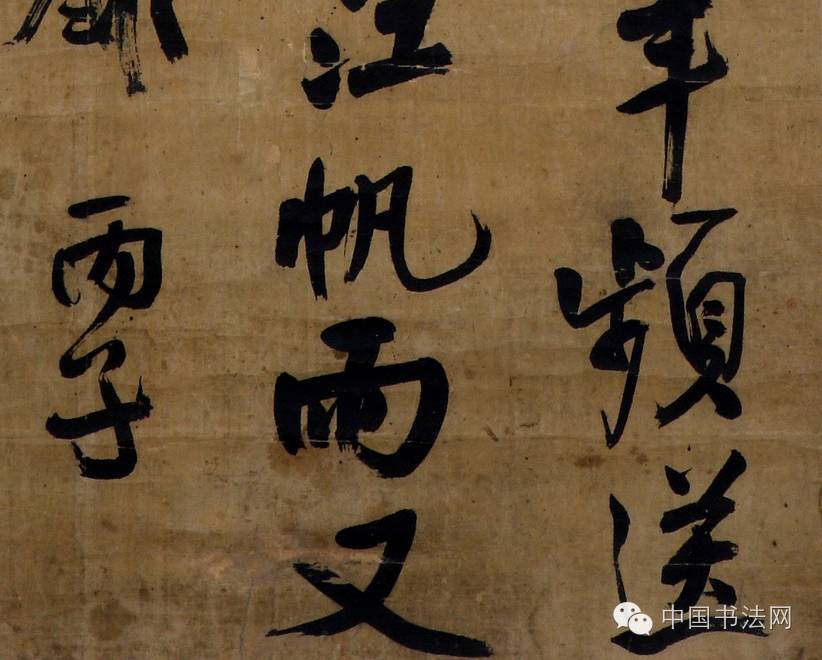 年頻送
帆雨又
丙子
中国书法网